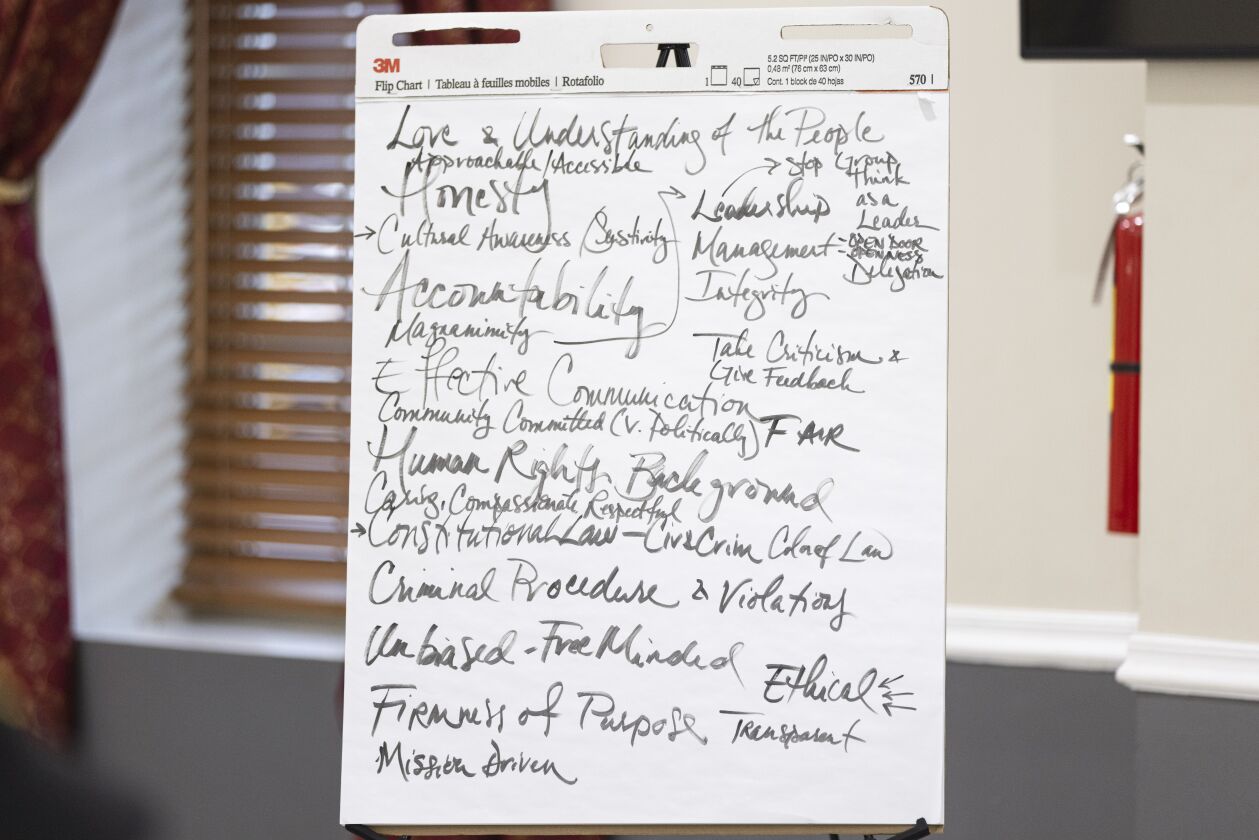 3M
Flip Chart | Tableau à feuilles mobiles | Rotafolio
1 40
5.2 SQ FT/PI² (25 IN/PO x 30 IN/PO)
0,48 m² (76 cm x 63 cm)
Cont. 1 block de 40 hojas
570 |
Love & Understanding of the People
Approachable/Accessible
Honesty
→ Cultural Awareness / Senstivity
Accountability
Magnanimity
Effective Communication
Community Committed (v. Politically)
Human Rights Background
Caring, Compassionate, Respectful
→ Constitutional Law - Civ & Crim Color of Law
Criminal Procedure & Violations
Unbiased - Free Minded
Firmness of Purpose
Mission Driven
→ Stop Group
Think
as a
Leader
Leadership
Management - OPEN DOOR
- OPENNESS
Delegation
Integrity
Take Criticism &
Give Feedback
FAIR
Ethical
Transparent